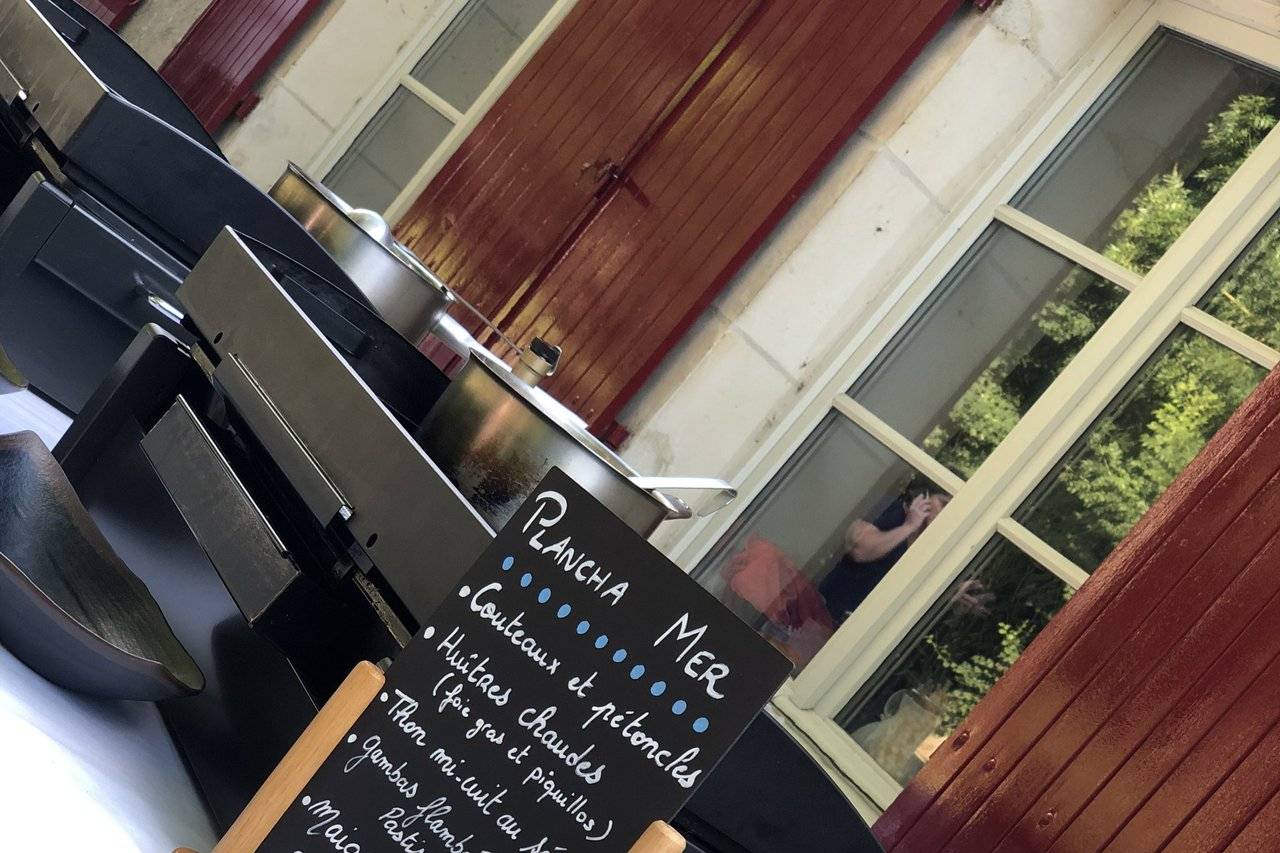 PLANCHA MER
• Couteaux et pétoncles
• Huîtres chaudes
(foie gras et piquillos)
• Thon mi-cuit au
• Gambas